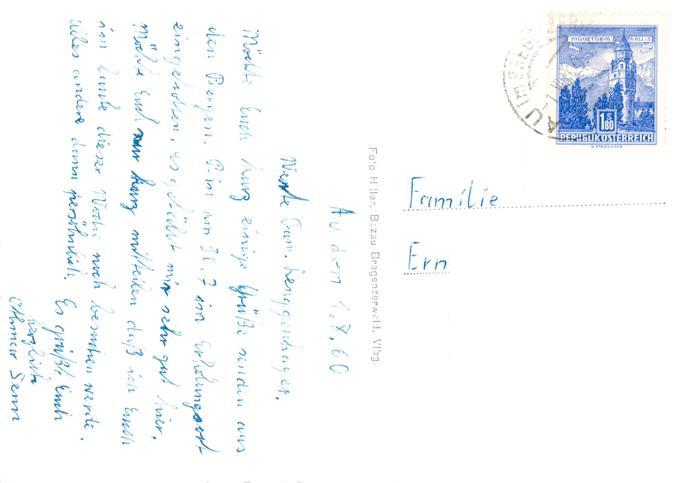 Au den 1.8.60
Werte Fam. Lenggenhager.
Möchte Euch kurz einige Grüße senden aus
den Bergen. Bin am 31.7 im Erholungsort
eingetroffen, es gefällt mir sehr gut hier.
Möchte Euch nur kurz mitteilen daß ich Euch
im Laufe dieser Woche noch besuchen werde.
Alles andere dann persönlich. Es grüßt Euch
herzlich
Othmar Senn
Foto Hiller, Bezau Bregenzerwald, Vlbg.
MÜNZTURM HALL i.T.
S
1.80
REPUBLIK ÖSTERREICH
AU IM BREGENZERWALD
Familie
Ern